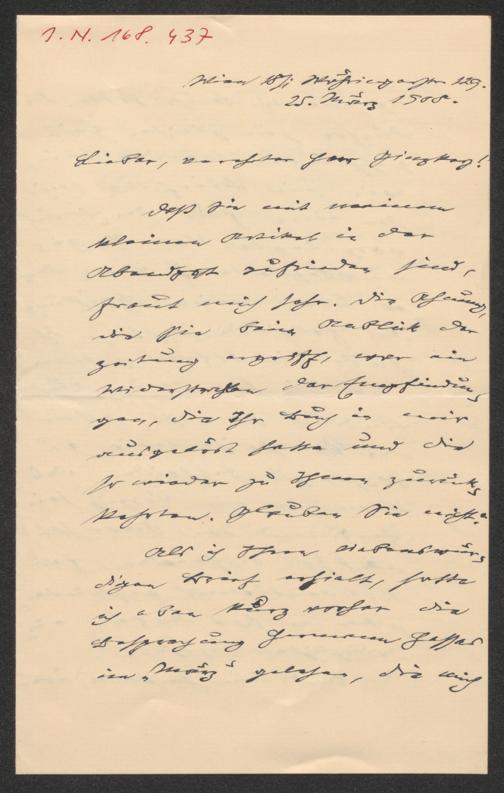 I. N. 168. 437
Wien 18/1 Währingerstr. 129.
25. März 1908.
Lieber, verehrter Herr Ginzkey!
Daß Sie mit meinem
kleinen Artikel in der
Abendpost zufrieden sind,
freut mich sehr. Die Ahnung,
die Sie beim Anblick der
Zeitung ergriff, war ein
Widerstrahlen der Empfindun-
gen, die Ihr Buch in mir
ausgelöst hatte und die
so wieder zu Ihnen zurück-
kehrten. Glauben Sie nicht?
Als ich Ihren liebenswür-
digen Brief erhielt, hatte
ich eben kurz vorher die
Besprechung Hermann Hesses
im „März" gelesen, die mich